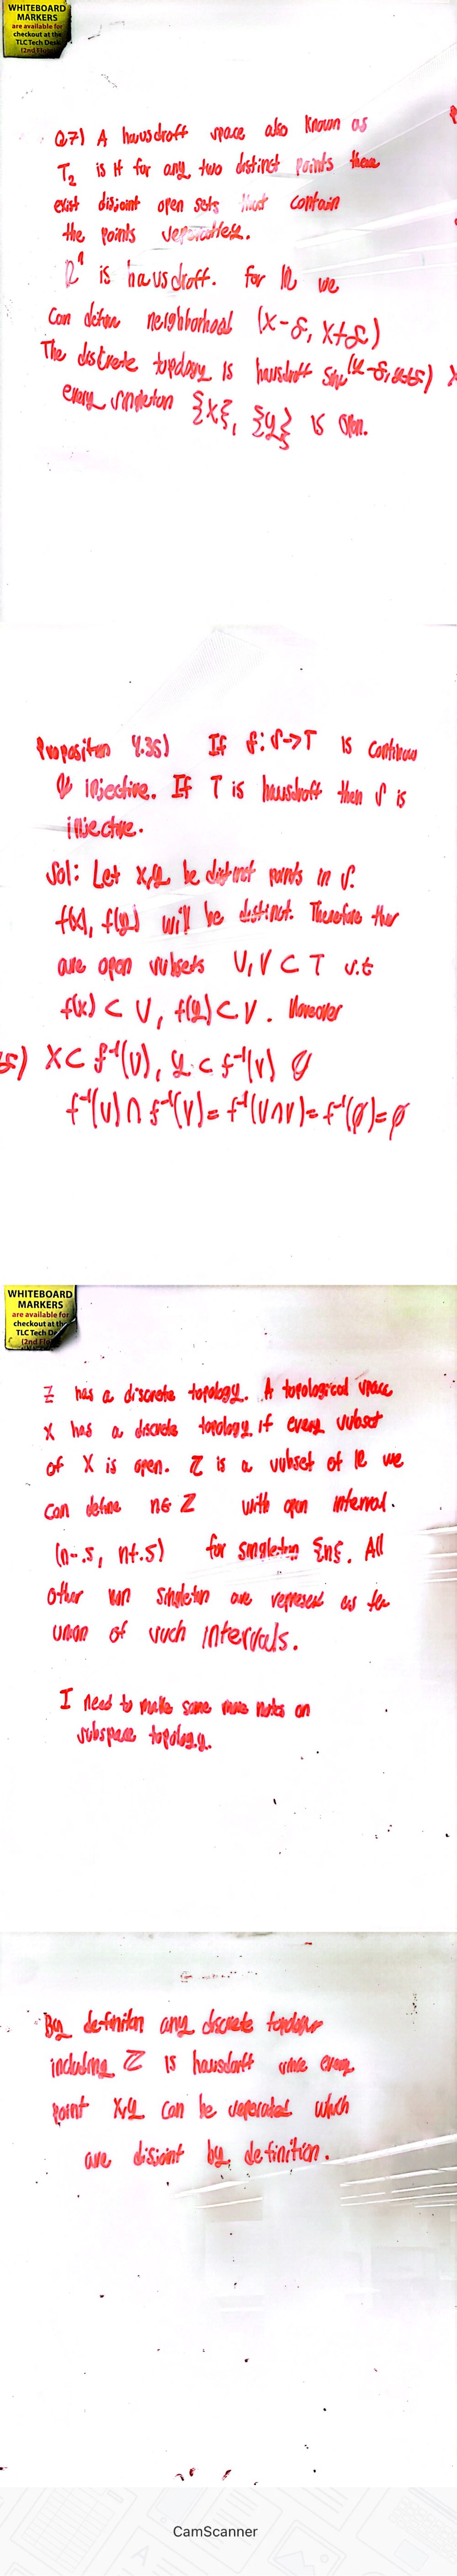 WHITEBOARD
MARKERS
are available for
checkout at the
TLC Tech Desk
(2nd Floor)
Q7) A hausdroff space also known as
T₂ is if for any two distinct points there
exist disjoint open sets that contain
the points seperatley.
ℝ¹ is hausdroff. for ℝ we
can define neighborhood (x-δ, x+δ)
The discrete topology is hausdroff since (y-δ, y+δ)
every singleton {x}, {y} is open.
Proposition 4.35) If f: S→T is continuous
& injective. If T is hausdroff then S is
injective.
Sol: Let x,y be distinct points in S.
f(x), f(y) will be distinct. Therefore ther
are open subsets U, V ⊂ T s.t
f(x) ⊂ U, f(y) ⊂ V. Moreover
X ⊂ f⁻¹(U), y ⊂ f⁻¹(V) &
f⁻¹(U) ∩ f⁻¹(V) = f⁻¹(U∩V) = f⁻¹(∅) = ∅
WHITEBOARD
MARKERS
are available for
checkout at the
TLC Tech
(2nd
ℤ has a discrete topology. A topological space
X has a discrete topology if every subset
of X is open. ℤ is a subset of ℝ we
can define n∈ℤ with open interval.
(n-.5, n+.5) for singleton {n}. All
other singleton are represent as
union of such intervals.
I need to make some more notes on
subspace topology.
By definitn any discrete topology
including ℤ is hausdorff since every
point x,y can be seperated which
are disjoint by definition.
CamScanner